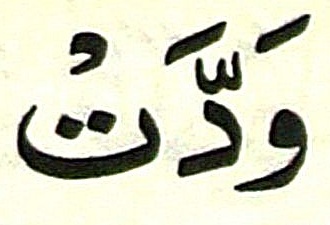 وَدَّتْ